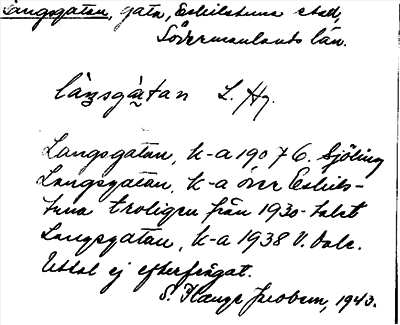 Langsgatan, gata, Eskilstuna stad,
Södermanlands län.
làŋsgàtan L. Hg.
Langsgatan, k-a 1907 G. Sjöling
Langsgatan, k-a över Eskils-
tuna troligen från 1930-talet
Langsgatan, k-a 1938 V. Dale.
Uttal ej efterfrågat.
S. 1943.